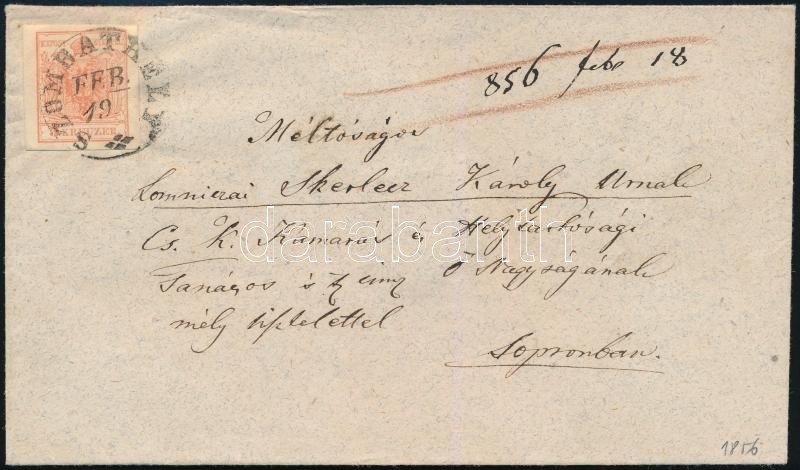 SZOMBATHELY
FEB.
19
KREUZER
856 febr 18
Méltóságos
Lomniczai Skerlecz Károly Urnak
Cs. K. Kamarás és Helytartósági
Tanácsos ő Nagyságának
mély tisztelettel
Sopronban.
darabanth
1856